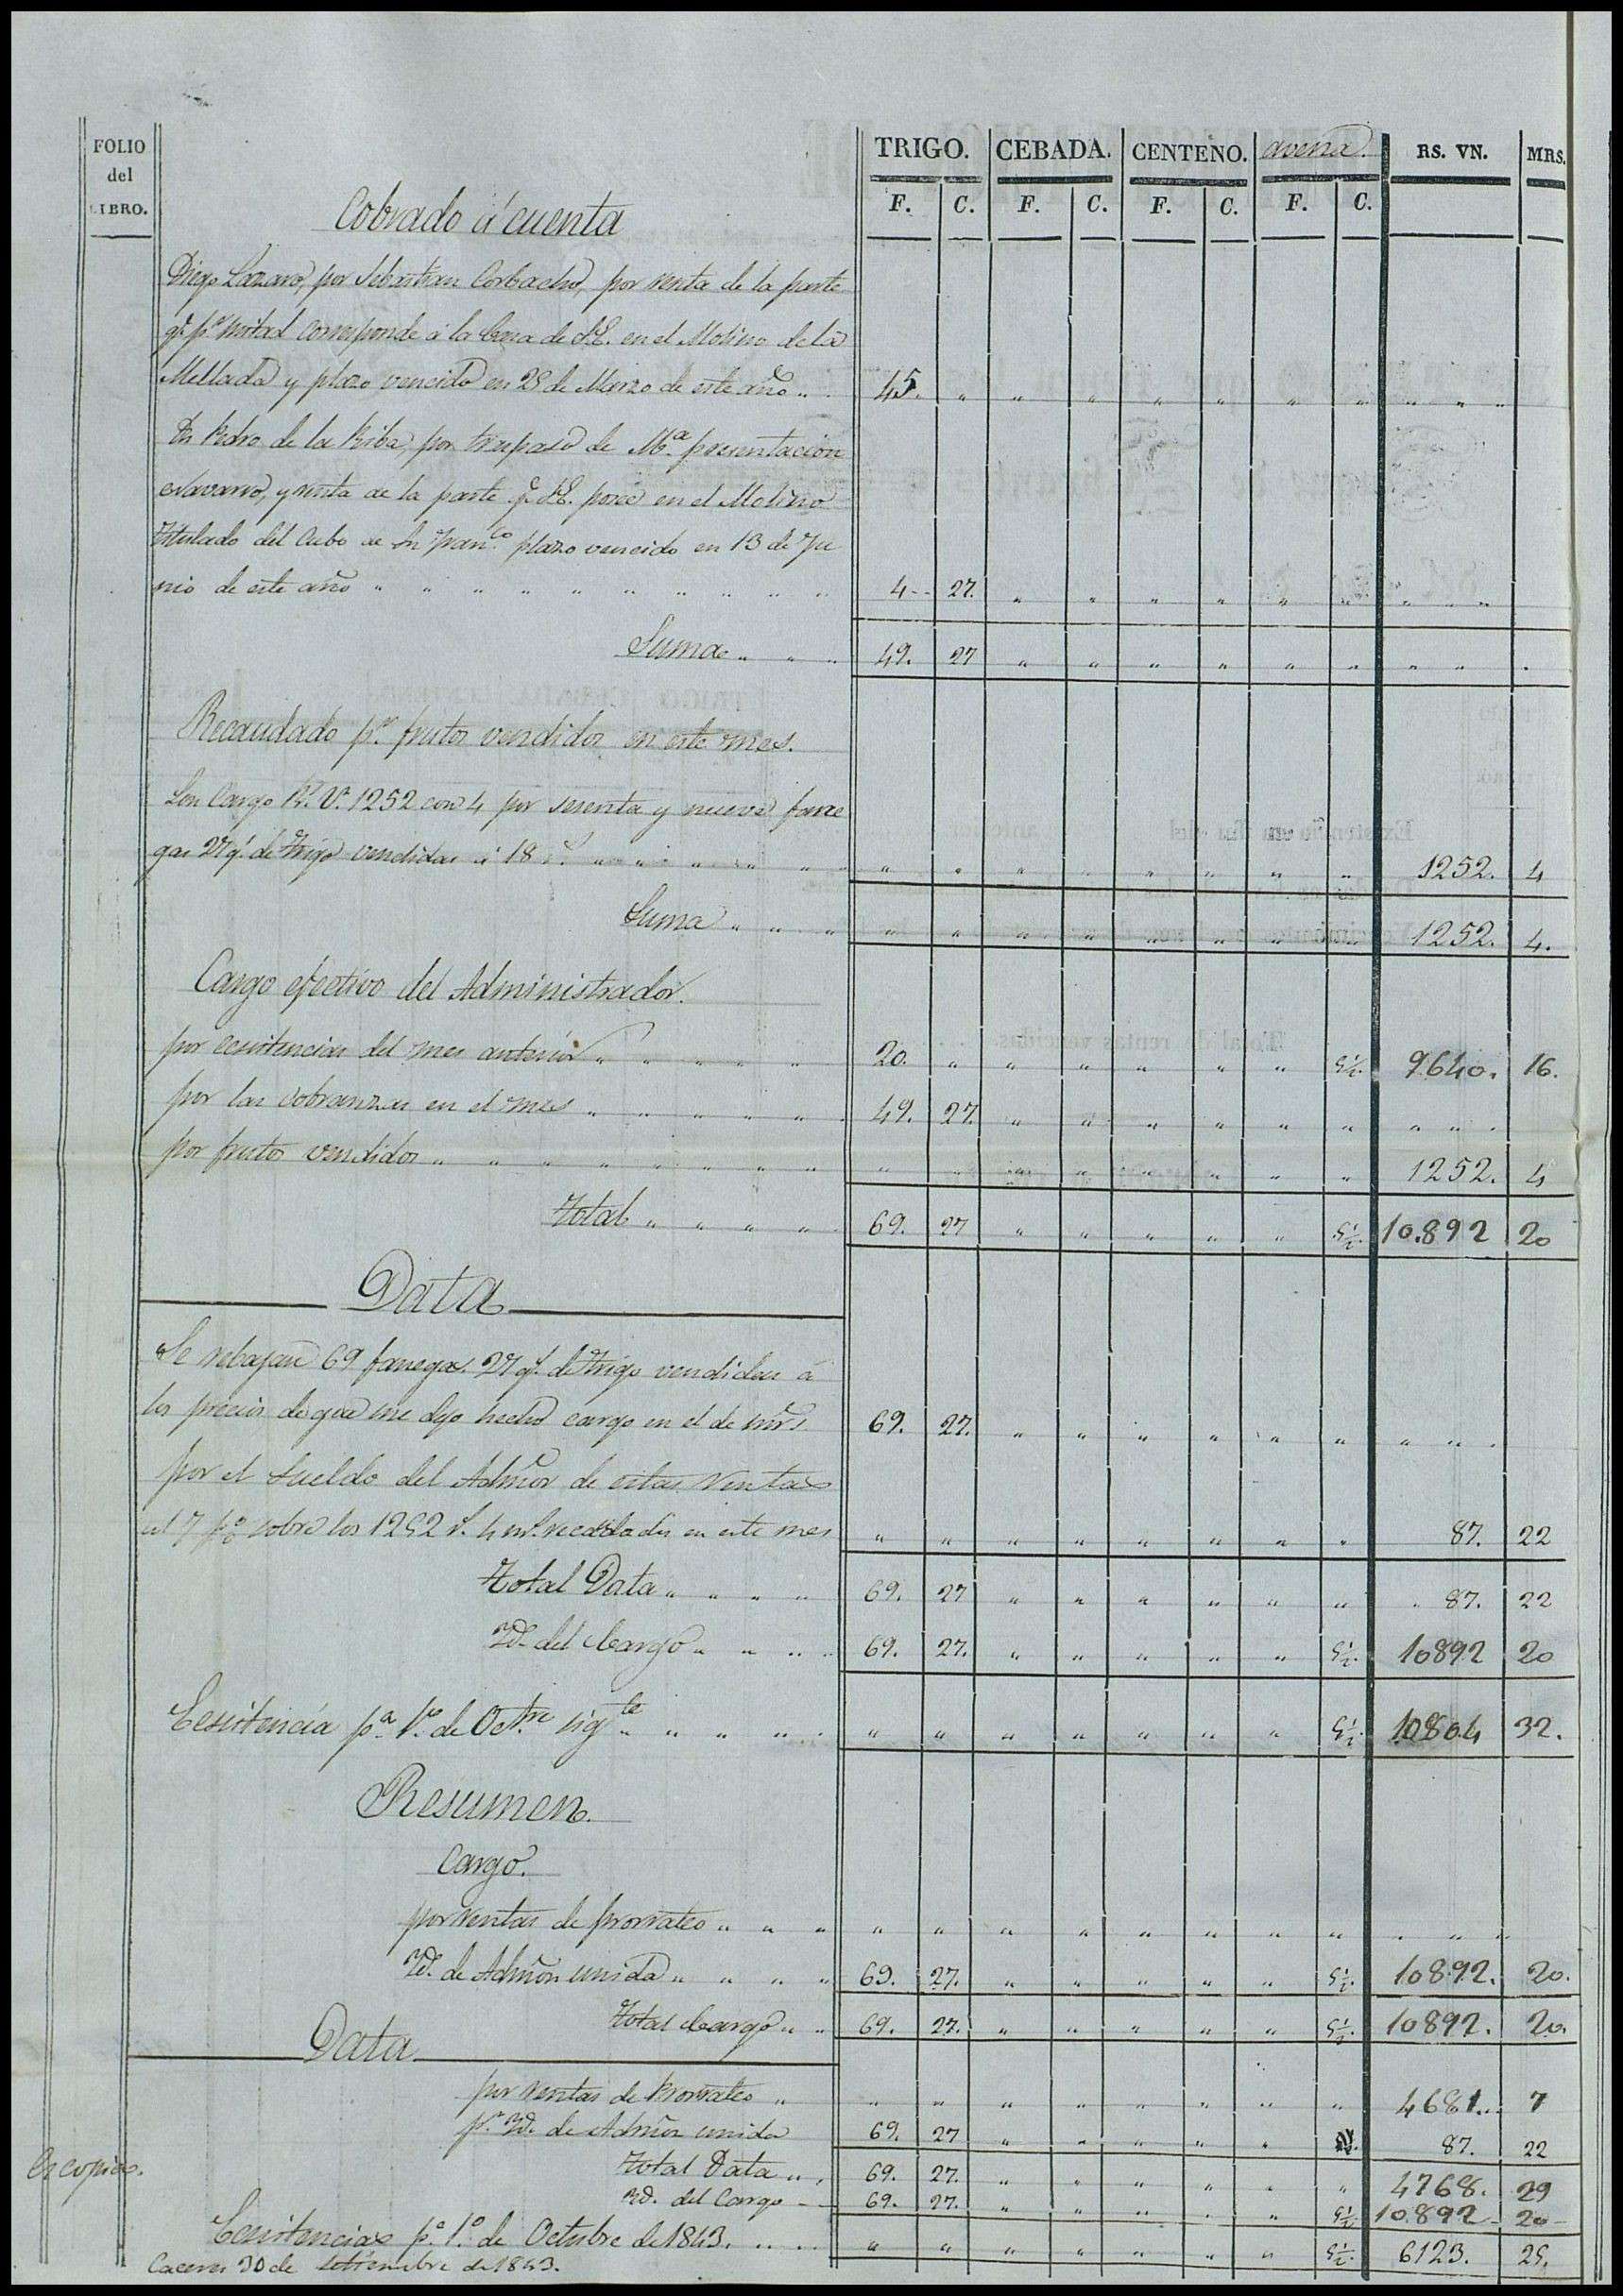 FOLIO del LIBRO. TRIGO. CEBADA. CENTENO. avena. RS. VN. MRS.
F. C. F. C. F. C. F. C.
Cobrado á cuenta
Diego Lazaro, por Sebastian Corbacho, por renta de la parte
qe. pr. mitad corresponde á la Casa de S.E. en el Molino de la
Mellada y plazo vencido en 28 de Marzo de este año 45.
Dn Pedro de la Riba, por traspaso de Ma. presentacion
Navarro, y renta de la parte qe. S.E. posee en el Molino
titulado del Cubo de Sn Franco. plazo vencido en 13 de Ju
nio de este año 4 27.
Suma 49. 27
Recaudado pr. frutos vendidos en este mes.
Son Cargo Rs. Vn. 1252 con 4 por sesenta y nueve fane
gas 27 qs. de trigo vendidas á 18 rs. 1252. 4
Suma 1252. 4.
Cargo efectivo del Administrador.
por ecsistencias del mes anterior 20. 5½. 9640. 16.
por las cobranzas en el mes 49. 27.
por frutos vendidos 1252. 4
Total 69. 27 5½. 10.892 20
Data
Se rebajan 69 fanegas 27 qs. de trigo vendidas á
los precios de que me dejo hecho cargo en el de mrs. 69. 27.
por el sueldo del Admor de estas rentas
al 7 p% sobre los 1252 rs. 4 ms. recaudados en este mes 87. 22
Total Data 69. 27 87. 22
Yd. del Cargo 69. 27. 5½. 10892 20
Ecsistencia pa. 1º. de Octre. sigte. 5½. 10804 32.
Resumen.
Cargo.
por rentas de prorrateo
Yd. de Admon unida 69. 27. 5½. 10892. 20.
Total Cargo 69. 27. 5½. 10892. 20.
Data
por rentas de Prorrateo 4681. 7
pr. Yd. de Admon unida 69. 27 87. 22
Total Data 69. 27. 4768. 29
Yd. del Cargo 69. 27. 5½ 10.892 20
Ecsistencias pa. 1º. de Octubre de 1843. 5½. 6123. 25.
Es copia.
Caceres 30 de Setiembre de 1843.